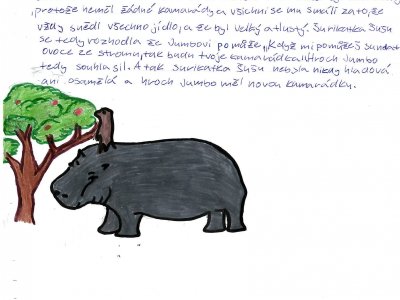 ,protože neměl žádné kamarády a všichni se mu smáli za to,že
vždy snědl všechno jídlo,a že byl velký a tlustý. Surikatka Šušu
se tedy rozhodla že Jumbovi pomůže,„Když mi pomůžeš sundat
ovoce ze stromu,tak budu tvoje kamarádka."Hroch Jumbo
tedy souhlasil. A tak surikatka Šušu nebyla nikdy hladová
ani osamělá a hroch Jumbo měl novou kamarádky.